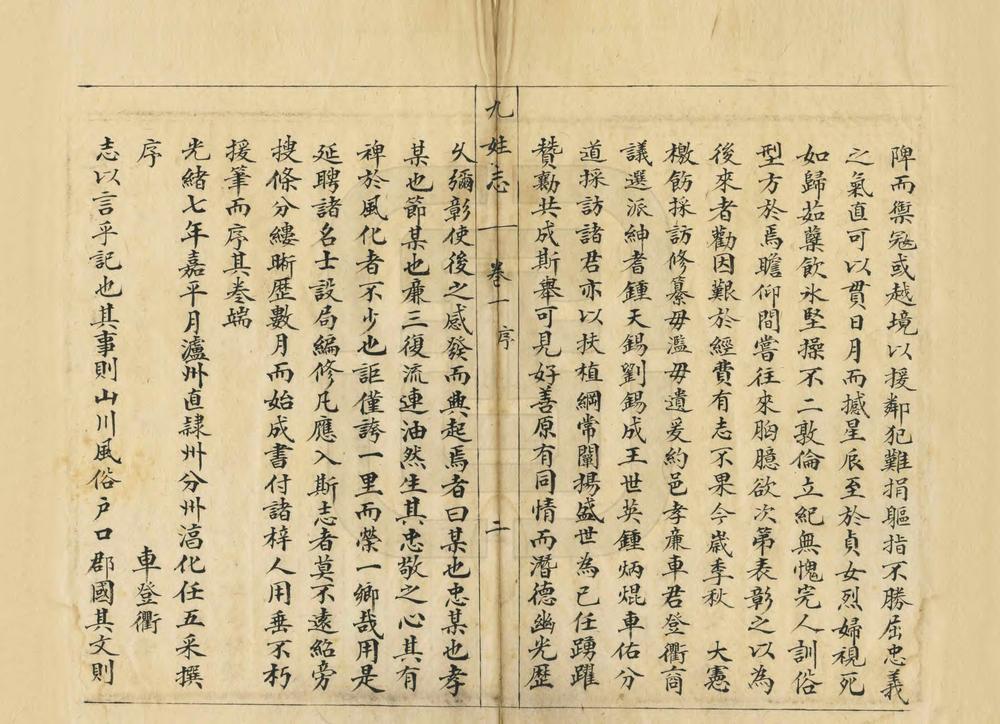 陴而禦冦或越境以援鄰犯難捐軀指不勝屈忠義
之氣直可以貫日月而撼星辰至於貞女烈婦視死
如歸茹蘗飲氷堅操不二敦倫立紀無愧完人訓俗
型方於焉瞻仰間嘗往來胸臆欲次第表彰之以為
後來者勸因艱於經費有志不果今嵗季秋 大憲
檄飭採訪修纂毋濫毋遺爰約邑孝亷車君登衢商
議選派紳耆鍾天錫劉錫成王世英鍾炳焜車佑分
道採訪諸君亦以扶植綱常闡揚盛世為已任踴躍
贊勷共成斯舉可見好善原有同情而潛德幽光歴
九姓志 卷一 序 二
乆彌彰使後之感發而興起焉者曰某也忠某也孝
某也節某也亷三復流連油然生其忠敬之心其有
裨於風化者不少也詎僅誇一里而榮一鄉哉用是
延聘諸名士設局編修凡應入斯志者莫不遠紹旁
搜條分縷晰歴數月而始成書付諸梓人用垂不朽
援筆而序其卷端
光緒七年嘉平月瀘州直隸州分州滈化任五采撰
序 車登衢
志以言乎記也其事則山川風俗户口郡國其文則